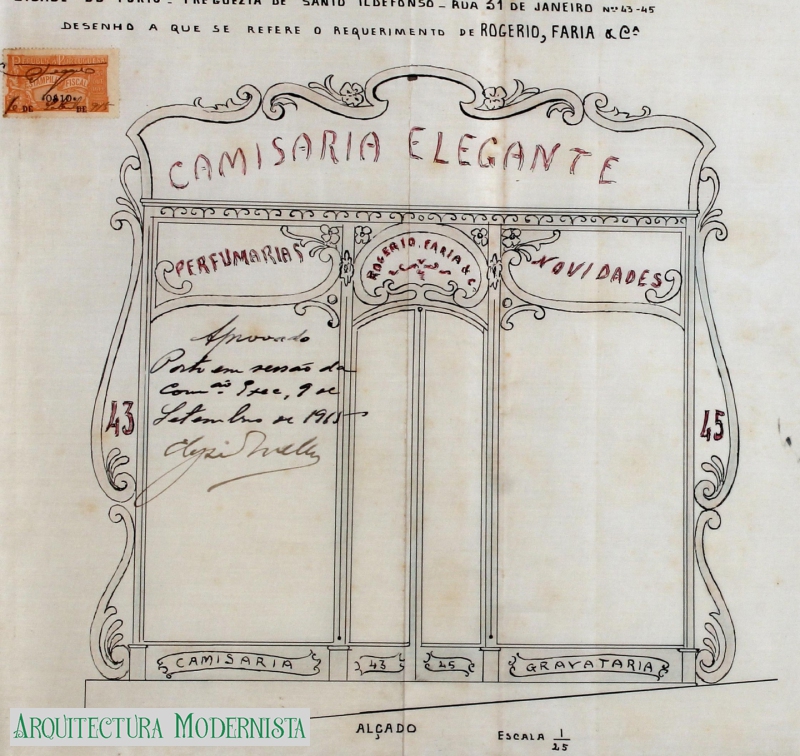 CIDADE DO PORTO - FREGUEZIA DE SANTO ILDEFONSO - RUA 31 DE JANEIRO Nos 43-45
DESENHO A QUE SE REFERE O REQUERIMENTO DE ROGERIO, FARIA & Cª
CAMISARIA ELEGANTE
PERFUMARIAS
ROGERIO, FARIA & Cª
NOVIDADES
Aprovado
Porto em sessão da
Comão Exec, 9 de
Setembro de 1915
43
45
CAMISARIA
43
45
GRAVATARIA
ARQUITECTURA MODERNISTA
ALÇADO
ESCALA 1/25